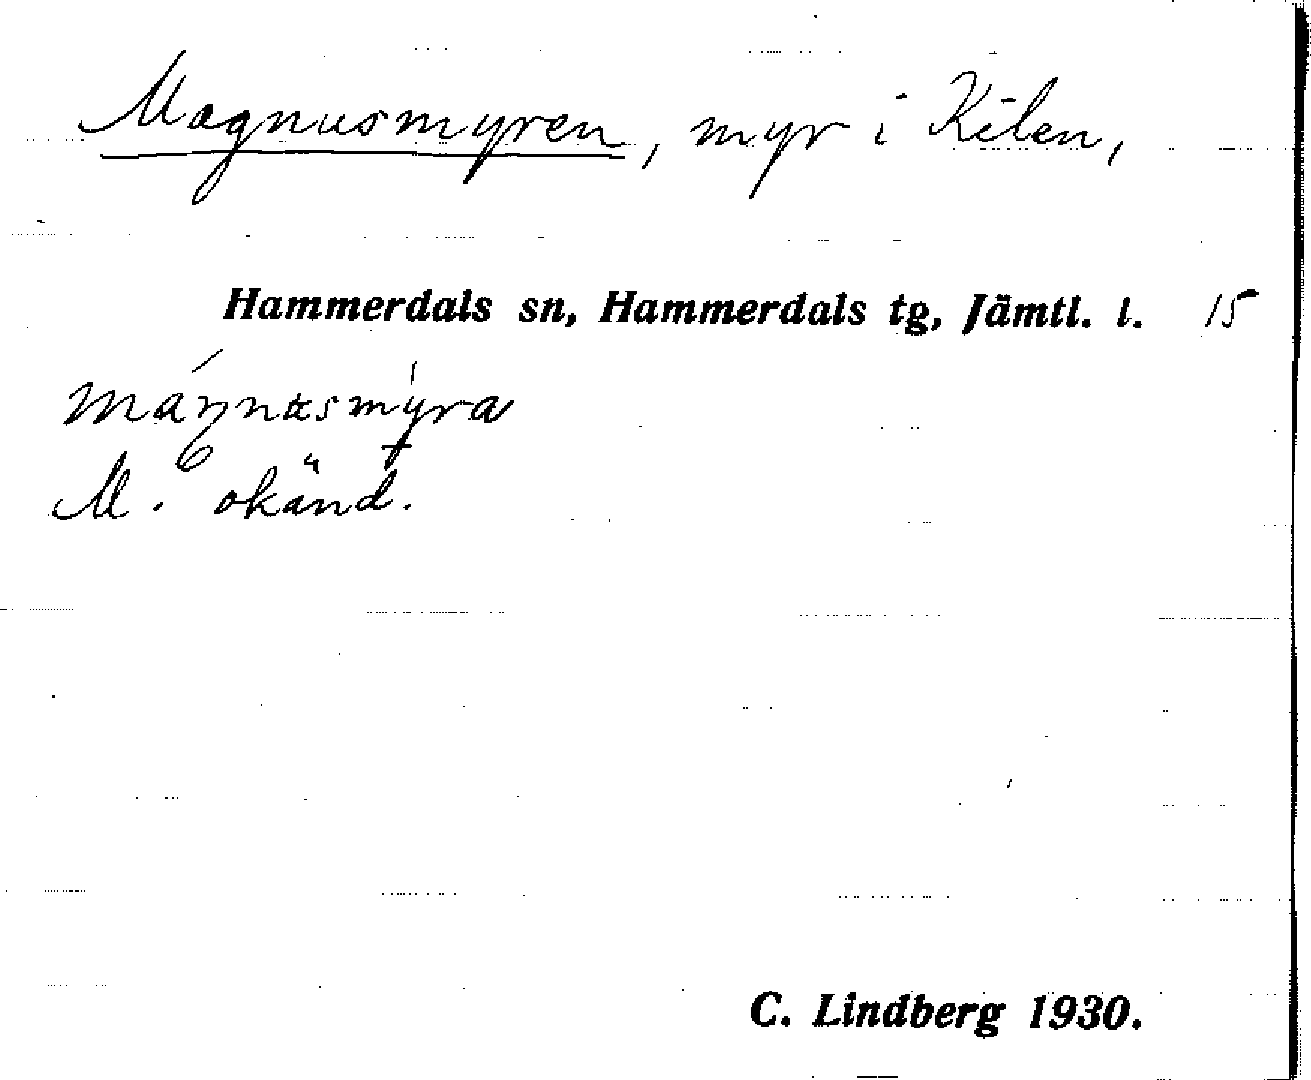 Magnusmyren, myr i Kilen,
Hammerdals sn, Hammerdals tg, Jämtl. l. 15
máŋnʉsmýra
M. okänd.
C. Lindberg 1930.